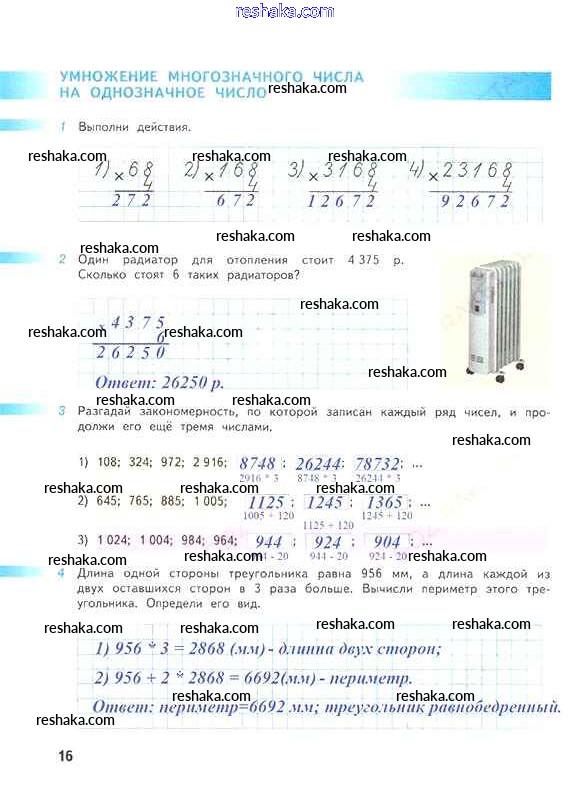 reshaka.com
УМНОЖЕНИЕ МНОГОЗНАЧНОГО ЧИСЛА
НА ОДНОЗНАЧНОЕ ЧИСЛО
reshaka.com
1 Выполни действия.
reshaka.com reshaka.com reshaka.com
1) × 68 2) × 168 3) × 3168 4) × 23168
4 4 4 4
272 672 12672 92672
reshaka.com reshaka.com
2 Один радиатор для отопления стоит 4 375 р.
Сколько стоят 6 таких радиаторов?
reshaka.com
× 4375
reshaka.com reshaka.com
6
26250
reshaka.com
Ответ: 26250 р.
3 Разгадай закономерность, по которой записан каждый ряд чисел, и про-
должи его ещё тремя числами.
reshaka.com
1) 108; 324; 972; 2 916; 8748 ; 26244; 78732; ...
2916 * 3 8748 * 3 26244 * 3
reshaka.com reshaka.com
2) 645; 765; 885; 1 005; 1125 ; 1245 ; 1365 ; ...
1005 + 120 1125 + 120 1245 + 120
3) 1 024; 1 004; 984; 964; 944 ; 924 ; 904 ; ...
reshaka.com reshaka.com reshaka.com
944 - 20 924 - 20
4 Длина одной стороны треугольника равна 956 мм, а длина каждой из
двух оставшихся сторон в 3 раза больше. Вычисли периметр этого тре-
угольника. Определи его вид.
reshaka.com reshaka.com
1) 956 * 3 = 2868 (мм) - длинна двух сторон;
2) 956 + 2 * 2868 = 6692(мм) - периметр.
reshaka.com reshaka.com
Ответ: периметр=6692 мм; треугольник равнобедренный.
reshaka.com
16